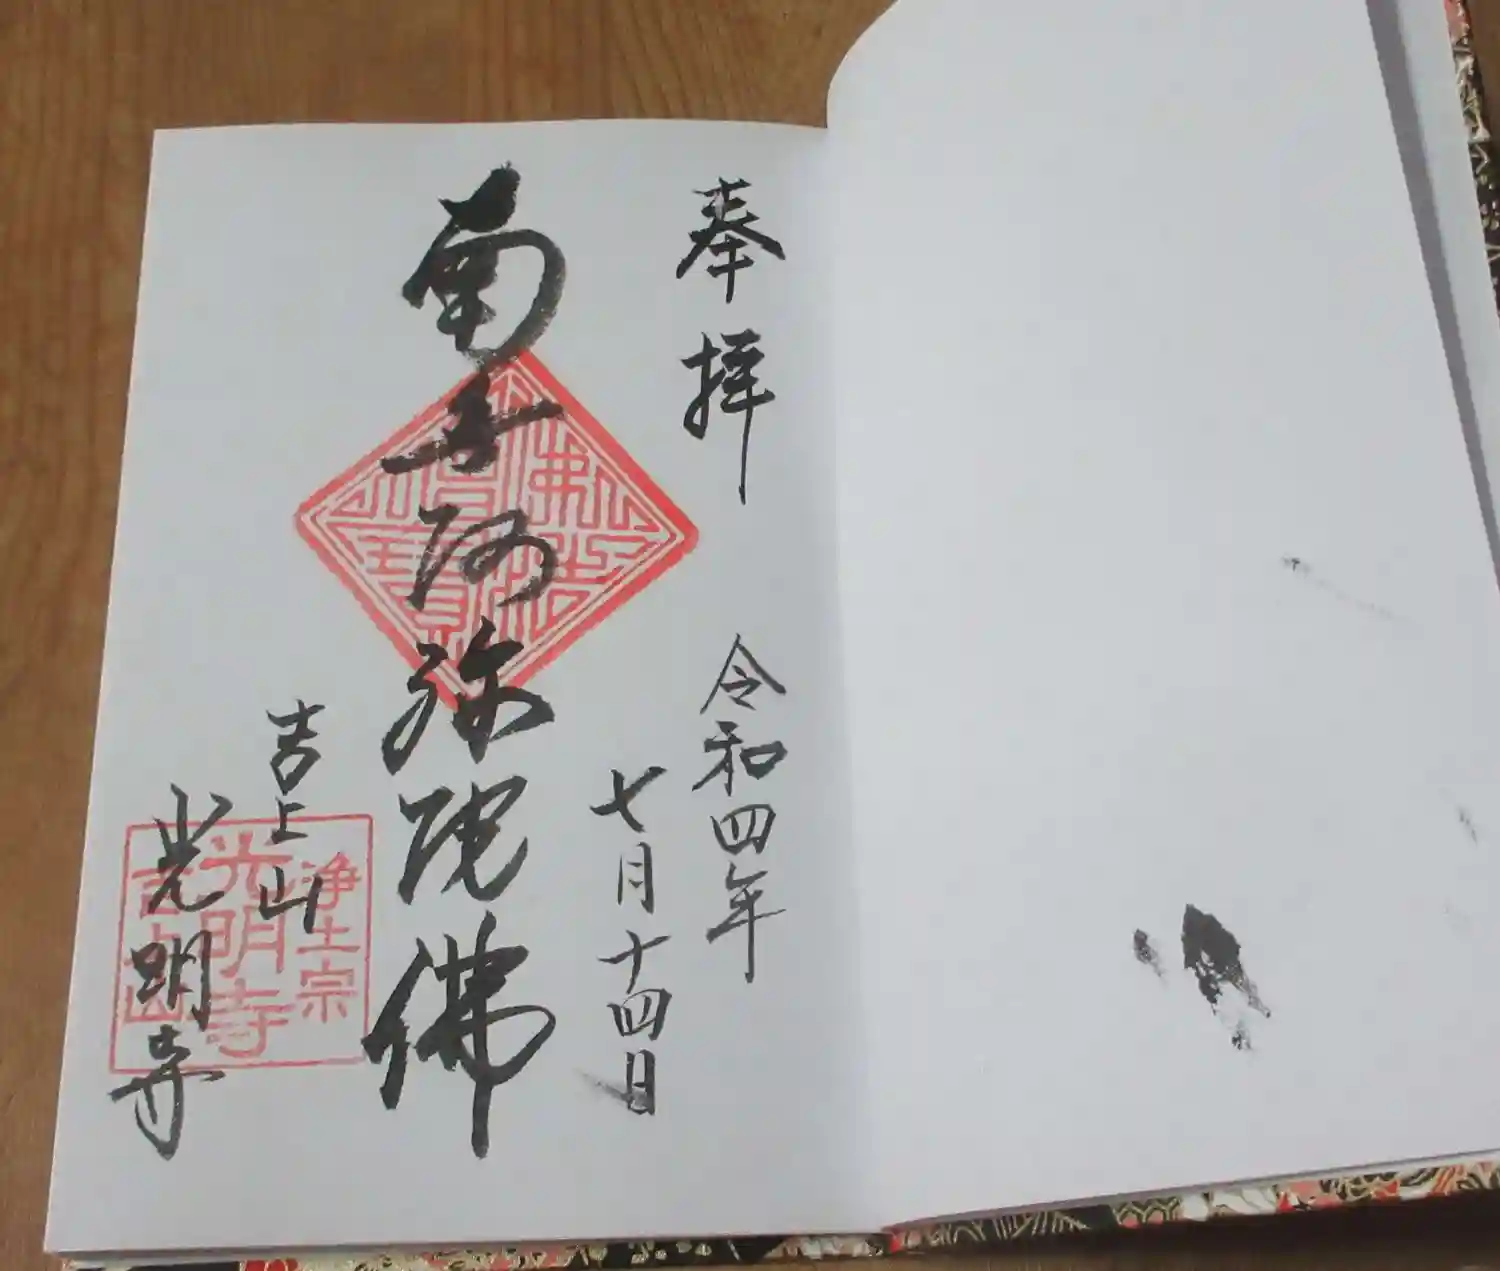 奉拝
令和四年
七月十四日
南无阿弥陀佛
吉上山
光明寺
佛法僧寳
浄土宗
光明寺
吉上山